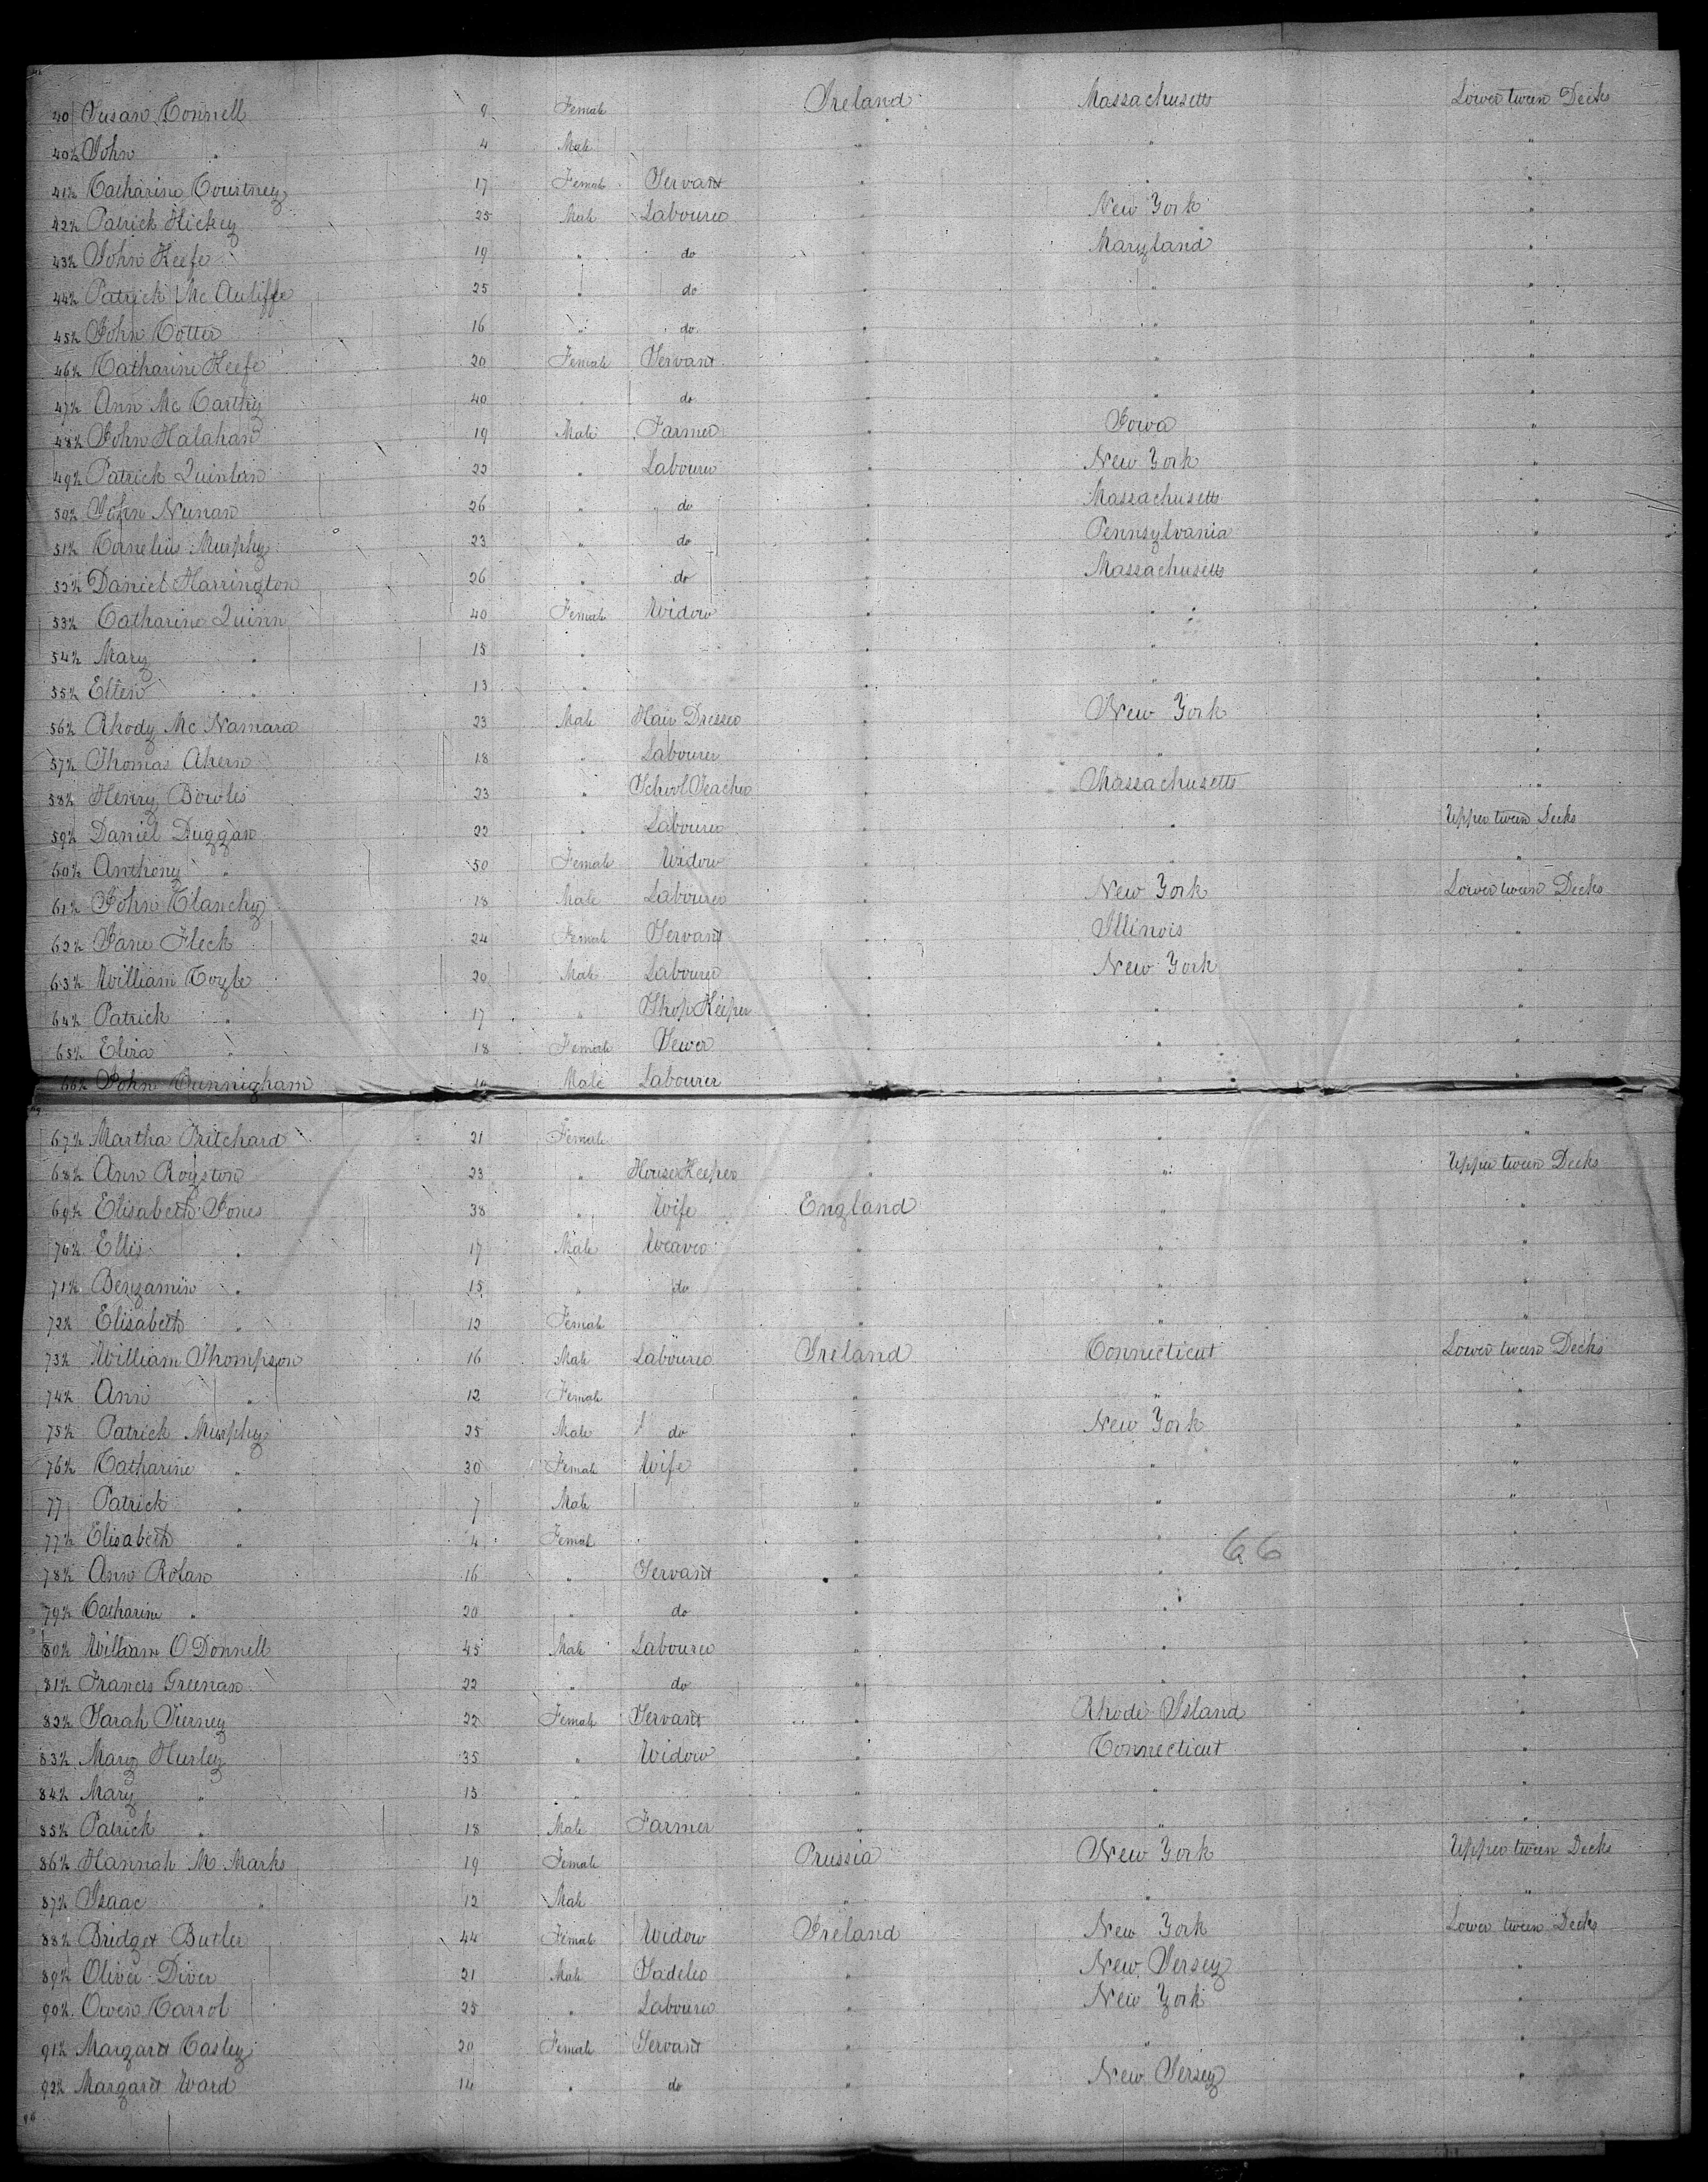 40 Susan Connell 9 Female Ireland Massachusetts Lower tween Decks
40½ John " 4 Male " " "
41½ Catharine Courtney 17 Female Servant " " "
42½ Patrick Hickey 25 Male Labourer " New York "
43½ John Keefe 19 " do " Maryland "
44½ Patrick Mc Auliffe 25 " do " " "
45½ John Cotter 16 " do " " "
46½ Catharine Keefe 20 Female Servant " " "
47½ Ann Mc Carthy 40 " do " " "
48½ John Halahan 19 Male Farmer " Iowa "
49½ Patrick Quinlan 22 " Labourer " New York "
50½ John Nunan 26 " do " Massachusetts "
51½ Cornelius Murphy 23 " do " Pennsylvania "
52½ Daniel Harrington 26 " do " Massachusetts "
53½ Catharine Quinn 40 Female Widow " " "
54½ Mary " 15 " " " "
55½ Ellen " 13 " " " "
56½ Rhody Mc Namara 23 Male Hair Dresser " New York "
57½ Thomas Ahern 18 " Labourer " " "
58½ Henry Bowles 23 " School Teacher " Massachusetts "
59½ Daniel Duggan 22 " Labourer " " Upper tween Decks
60½ Anthony " 50 Female Widow " " "
61½ John Clanchy 18 Male Labourer " New York Lower tween Decks
62½ Jane Fleck 24 Female Servant " Illinois "
63½ William Coyle 20 Male Labourer " New York "
64½ Patrick " 17 " Shop Keeper " " "
65½ Eliza " 18 Female Sewer " " "
66½ John Cunnigham Male Labourer " " "
67½ Martha Pritchard 21 Female " " "
68½ Ann Royston 23 " House Keeper " " Upper tween Decks
69½ Elisabeth Jones 38 " Wife England " "
70½ Ellis " 17 Male Weaver " " "
71½ Benjamin " 15 " do " " "
72½ Elisabeth " 12 Female " " "
73½ William Thompson 16 Male Labourer Ireland Connecticut Lower tween Decks
74½ Ann " 12 Female " " "
75½ Patrick Murphy 25 Male do " New York "
76½ Catharine " 30 Female Wife " " "
77 Patrick " 7 Male " " "
77½ Elisabeth " 4 Female " " "
66
78½ Ann Rolan 16 " Servant " " "
79½ Catharine " 20 " do " " "
80½ William O Donnell 45 Male Labourer " " "
81½ Francis Greenan 22 " do " " "
82½ Sarah Tierney 22 Female Servant " Rhode Island "
83½ Mary Hurley 35 " Widow " Connecticut "
84½ Mary " 15 " " " "
85½ Patrick " 18 Male Farmer " " "
86½ Hannah M Marks 19 Female Prussia New York Upper tween Decks
87½ Isaac " 12 Male " " "
88½ Bridget Butler 44 Female Widow Ireland New York Lower tween Decks
89½ Oliver Diver 21 Male Sadeler " New Jersey "
90½ Owen Carrol 25 " Labourer " New York "
91½ Margaret Casley 20 Female Servant " " "
92½ Margaret Ward 14 " do " New Jersey "